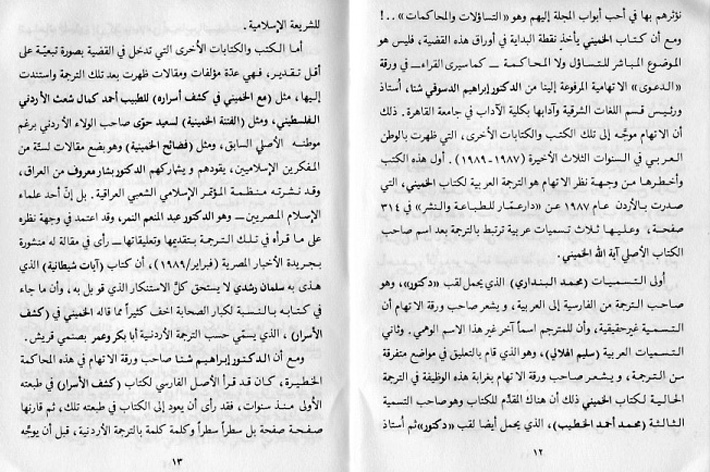 نؤثرهم بها في أحب أبواب المجلة إليهم وهو «التساؤلات والمحاكمات» ..!
ومع أن كتاب الخميني يأخذ نقطة البداية في أوراق هذه القضية، فليس هو
الموضوع المباشر للتساؤل ولا المحاكمة ــ كما سيرى القراء ــ في ورقة
«الدعوى» الاتهامية المرفوعة إلينا من الدكتور إبراهيم الدسوقي شتا، أستاذ
ورئيس قسم اللغات الشرقية وآدابها بكلية الآداب في جامعة القاهرة. ذلك
أن الاتهام موجّه إلى تلك الكتب والكتابات الأخرى، التي ظهرت بالوطن
العربي في السنوات الثلاث الأخيرة (١٩٨٧-١٩٨٩). أول هذه الكتب
وأخطرها من وجهة نظر الاتهام هو الترجمة العربية لكتاب الخميني، التي
صدرت بالأردن عام ١٩٨٧ عن «دار عمّار للطباعة والنشر» في ٣١٤
صفحة، وعليها ثلاث تسميات عربية ترتبط بالترجمة بعد اسم صاحب
الكتاب الأصلي آية الله الخميني.
أولى التسميات (محمد البنداري) الذي يحمل لقب «دكتور»، وهو
صاحب الترجمة من الفارسية إلى العربية، ويشعر صاحب ورقة الاتهام أن
التسمية غير حقيقية، وأن للمترجم اسماً آخر غير هذا الاسم الوهمي. وثاني
التسميات العربية (سليم الهلالي)، وهو الذي قام بالتعليق في مواضع متفرقة
من الترجمة، ويشعر صاحب ورقة الاتهام بغرابة هذه الوظيفة في الترجمة
الحالية لكتاب الخميني ذلك أن هناك المقدّم للكتاب وهو صاحب التسمية
الثالثة (محمد أحمد الخطيب)، الذي يحمل أيضا لقب «دكتور» ثم أستاذ
١٢
للشريعة الإسلامية.
أما الكتب والكتابات الأخرى التي تدخل في القضية بصورة تبعيّة على
أقل تقدير، فهي عدّة مؤلفات ومقالات ظهرت بعد تلك الترجمة واستندت
إليها، مثل (مع الخميني في كشف أسراره) للطبيب أحمد كمال شعث الأردني
الفلسطيني، ومثل (الفتنة الخمينية) لسعيد حوّى صاحب الولاء الأردني برغم
موطنه الأصلي السابق، ومثل (فضائح الخمينية) وهو بضع مقالات لستّة من
المفكرين الإسلاميين، يقودهم ويشاركهم الدكتور بشار معروف من العراق،
وقد نشرته منظمة المؤتمر الإسلامي الشعبي العراقية. بل إنّ أحد علماء
الإسلام المصريين ــ وهو الدكتور عبد المنعم النمر، وقد اعتمد في وجهة نظره
على ما قرأه في تلك الترجمة بتقديمها وتعليقاتها ــ رأى في مقالة له منشورة
بجريدة الأخبار المصرية (فبراير/١٩٨٩)، أن كتاب (آيات شيطانية) الذي
هذى به سلمان رشدي لا يستحق كلّ الاستنكار الذي قوبل به، وأن ما جاء
في كتابه بالنسبة لكبار الصحابة اخف كثيراً مما قاله الخميني في (كشف
الأسرار)، الذي يسمّي حسب الترجمة الأردنية أبا بكر وعمر بصنمي قريش.
ومع أن الدكتور إبراهيم شتا صاحب ورقة الاتهام في هذه المحاكمة
الخطيرة، كان قد قرأ الأصل الفارسي لكتاب (كشف الأسرار) في طبعته
الأولى منذ سنوات، فقد رأى أن يعود إلى الكتاب في طبعته تلك، ثم قارنها
صفحة صفحة بل سطراً سطراً وكلمة كلمة بالترجمة الأردنية، قبل أن يوجّه
١٣